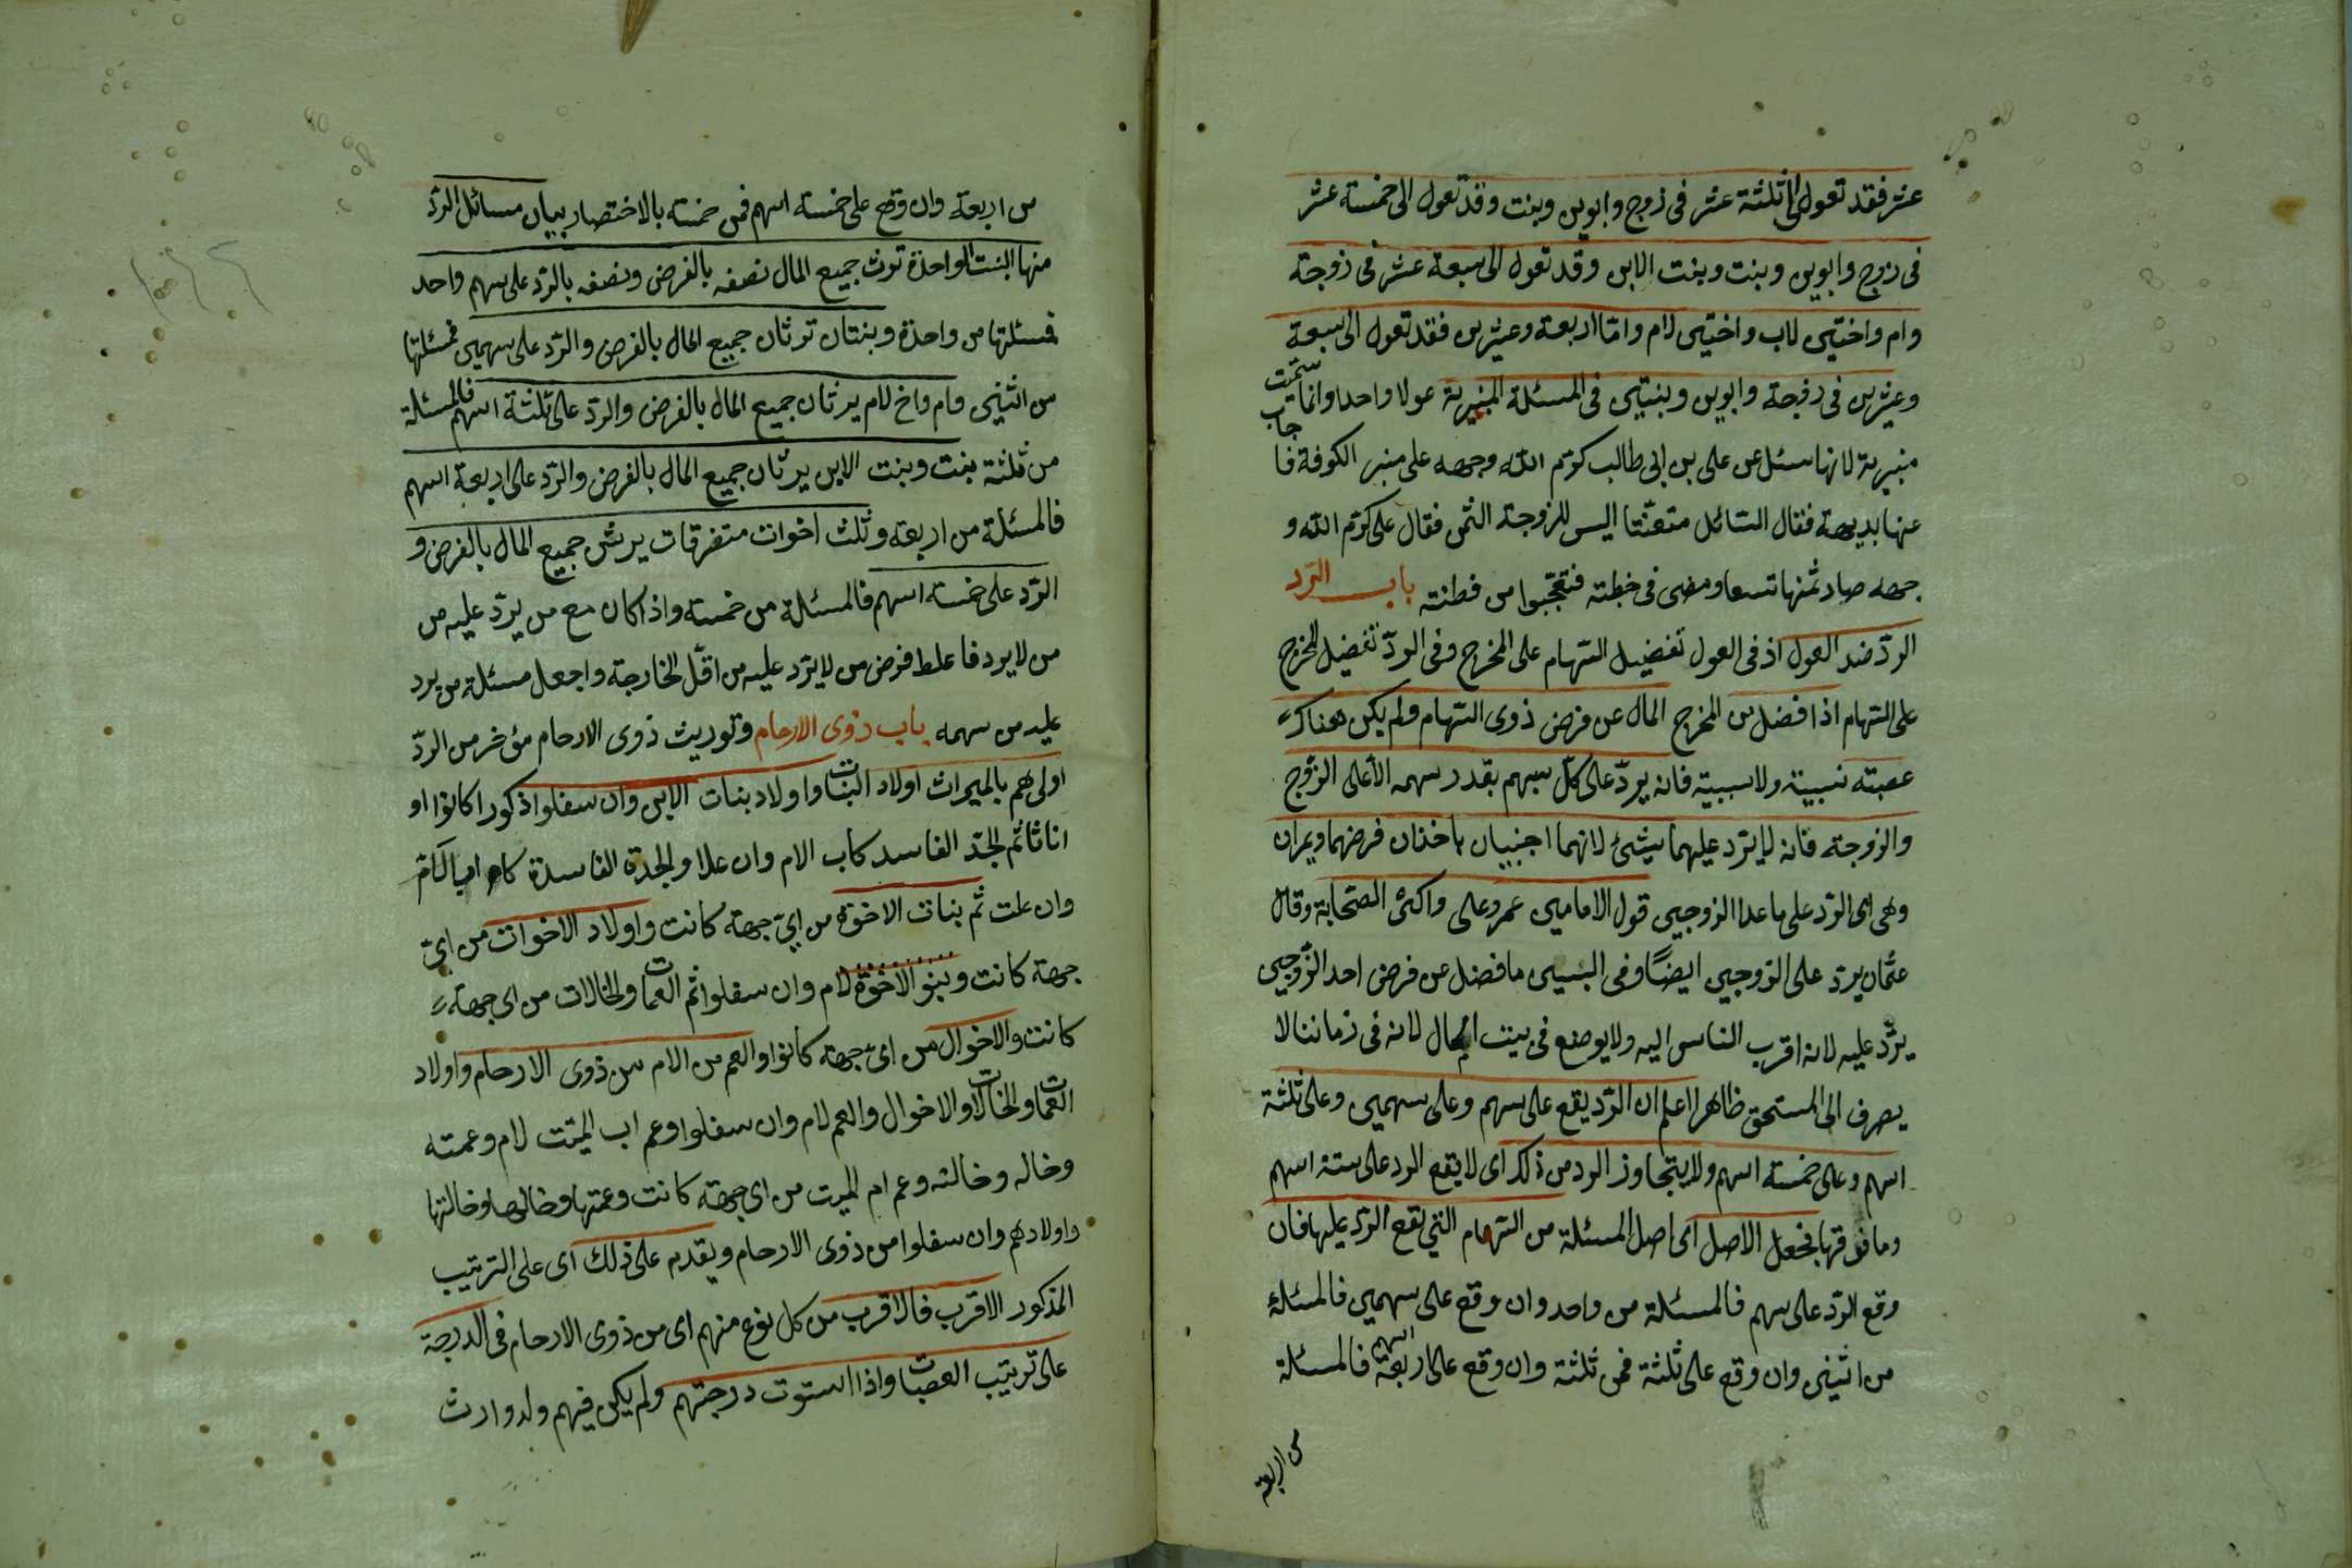 عشر فقد تعول الى ثلثة عشر فى زوج وابوين وبنت وقد تعول الى خمسة عشر
فى زوج وابوين وبنت وبنت الابن وقد تعول الى سبعة عشر فى زوجة
وام واختين لاب واختين لام واما اربعة وعشرين فقد تعول الى سبعة
وعشرين فى زوجة وابوين وبنتين فى المسئلة المنبرية عولا واحدا وانما سميت
منبرية لانها سئل عن على بن ابى طالب كرم الله وجهه على منبر الكوفة فاجاب
عنها بديهة فقال السائل متعنّتا اليس للزوجة الثمن فقال على كرم الله و
جهه صار ثمنها تسعا ومضى فى خطبته فتعجّبوا من فطنته باب الرّد
الردّ ضد العول اذ فى العول تفضيل السّهام على المخرج وفى الردّ تفضيل المخرج
على السّهام اذا فضل من المخرج المال عن فرض ذوى السّهام ولم يكن هناك
عصبته نسبية ولا سببية فانه يردّ على كلّ سهم بقدر سهمه الّا على الزّوج
والزوجة فانه لا يردّ عليهما بشئ لانهما اجنبيان ياخذان فرضهما ويمران
وهى اى الرّد على ما عدا الزوجين قول الامامين عمر وعلى واكثر الصّحابة وقال
عثمان يردّ على الزوجين ايضًا وفى ما فضل عن فرض احد الزّوجين
يردّ عليه لانه اقرب الناس اليه ولا يوضع فى بيت المال لانه فى زماننا لا
يصرف الى المستحق ظاهرا اعلم ان الرّد يقع على سهم وعلى سهمين وعلى ثلثة
اسهم وعلى خمسة اسهم ولا يتجاوز الرد من ذلك اى لا يقع الرد على ستة اسهم
وما فوقها فجعل الاصل اى اصل المسئلة من السّهام التى يقع الردّ عليها فان
وقع الرّد على سهم فالمسئلة من واحد وان وقع على سهمين فالمسئلة
من اثنين وان وقع على ثلثة فمن ثلثة وان وقع على اربعة اسهم فالمسئلة
من اربعة
من اربعة وان وقع على خمسة اسهم فمن خمسة بالاختصار بيان مسائل الردّ
منها البنت الواحدة ترث جميع المال نصفه بالفرض ونصفه بالرّد على سهم واحد
فمسئلتها من واحدة وبنتان ترثان جميع المال بالفرض والرّد على سهمين فمسئلتها
من اثنين وام واخ لام يرثان جميع المال بالفرض والردّ على ثلثة اسهم فالمسئلة
من ثلثة بنت وبنت الابن يرثان جميع المال بالفرض والرّد على اربعة اسهم
فالمسئلة من اربعة وثلث اخوات متفرقات يرثن جميع المال بالفرض و
الرّد على خمسة اسهم فالمسئلة من خمسة واذا كان مع من يردّ عليه من
من لا يرد فاعلط فرض من لا يردّ عليه من اقلّ الخارجة واجعل مسئلة من يرد
عليه من سهمه باب ذوى الارحام وتوريث ذوى الارحام مؤخر من الردّ
اولى هم بالميراث اولاد البنات واولاد بنات الابن وان سفلوا ذكورا كانوا او
اناثا ثم الجدّ الفاسد كاب الام وان علا والجدة الفاسدة كام اب الام
وان علت ثم بنات الاخوة من اىّ جهة كانت واولاد الاخوات من اىّ
جهة كانت وبنو الاخوة لام وان سفلوا ثم العمات والخالات من اى جهة
كانت والاخوال من اىّ جهة كانوا والعم من الام من ذوى الارحام واولاد
العمات والخالات والاخوال والعم لام وان سفلوا وعم اب الميّت لام وعمته
وخاله وخالته وعم ام الميت من اى جهة كانت وعمتها وخالها وخالتها
واولادهم وان سفلوا من ذوى الارحام ويقدم على ذلك اى على الترتيب
المذكور الاقرب فالاقرب من كل نوع منهم اى من ذوى الارحام فى الدرجة
على ترتيب العصبات واذا استوت درجتهم ولم يكن فيهم ولد وارث